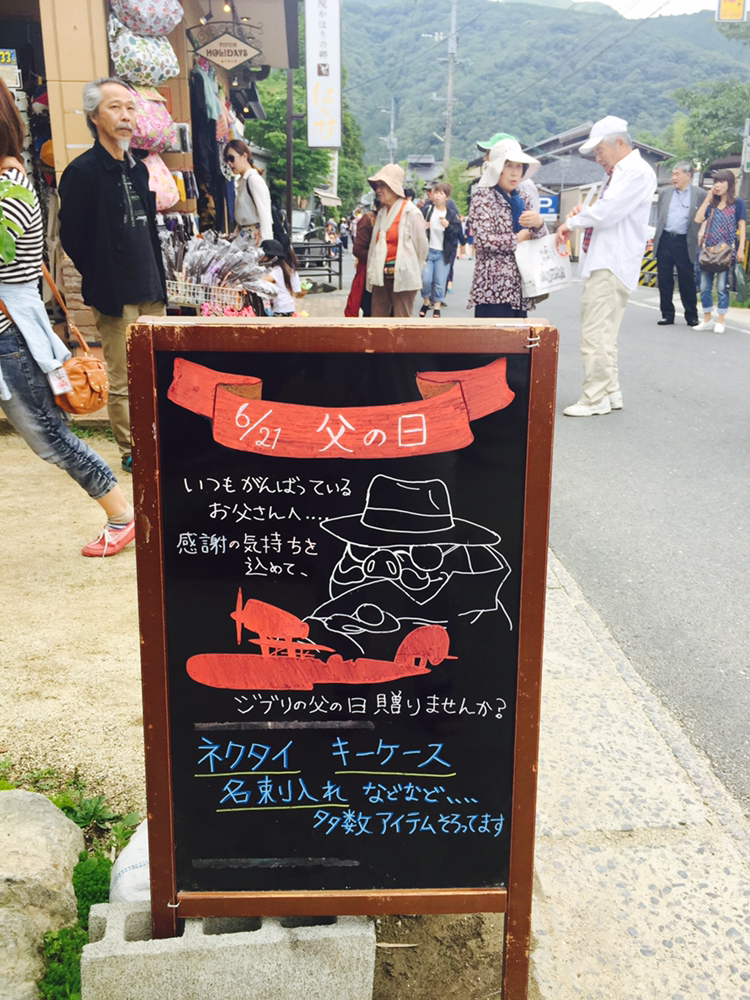 HOLiDAYS
6/21 父の日
いつもがんばっている
お父さんへ....
感謝の気持ちを
込めて、
ジブリの父の日贈りませんか?
ネクタイ キーケース
名刺入れ などなど....
多数アイテムそろってます